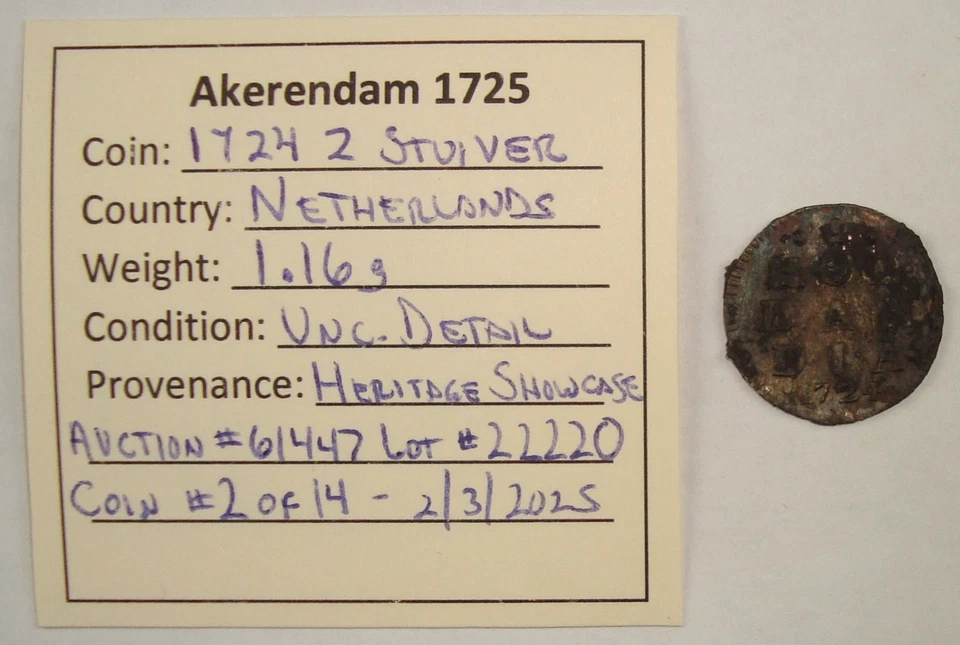 Akerendam 1725
Coin: 1724 2 STUIVER
Country: NETHERLANDS
Weight: 1.16g
Condition: UNC. DETAIL
Provenance: HERITAGE SHOWCASE
AUCTION #61447 LOT #22220
COIN #2 OF 14 - 2/3/2025